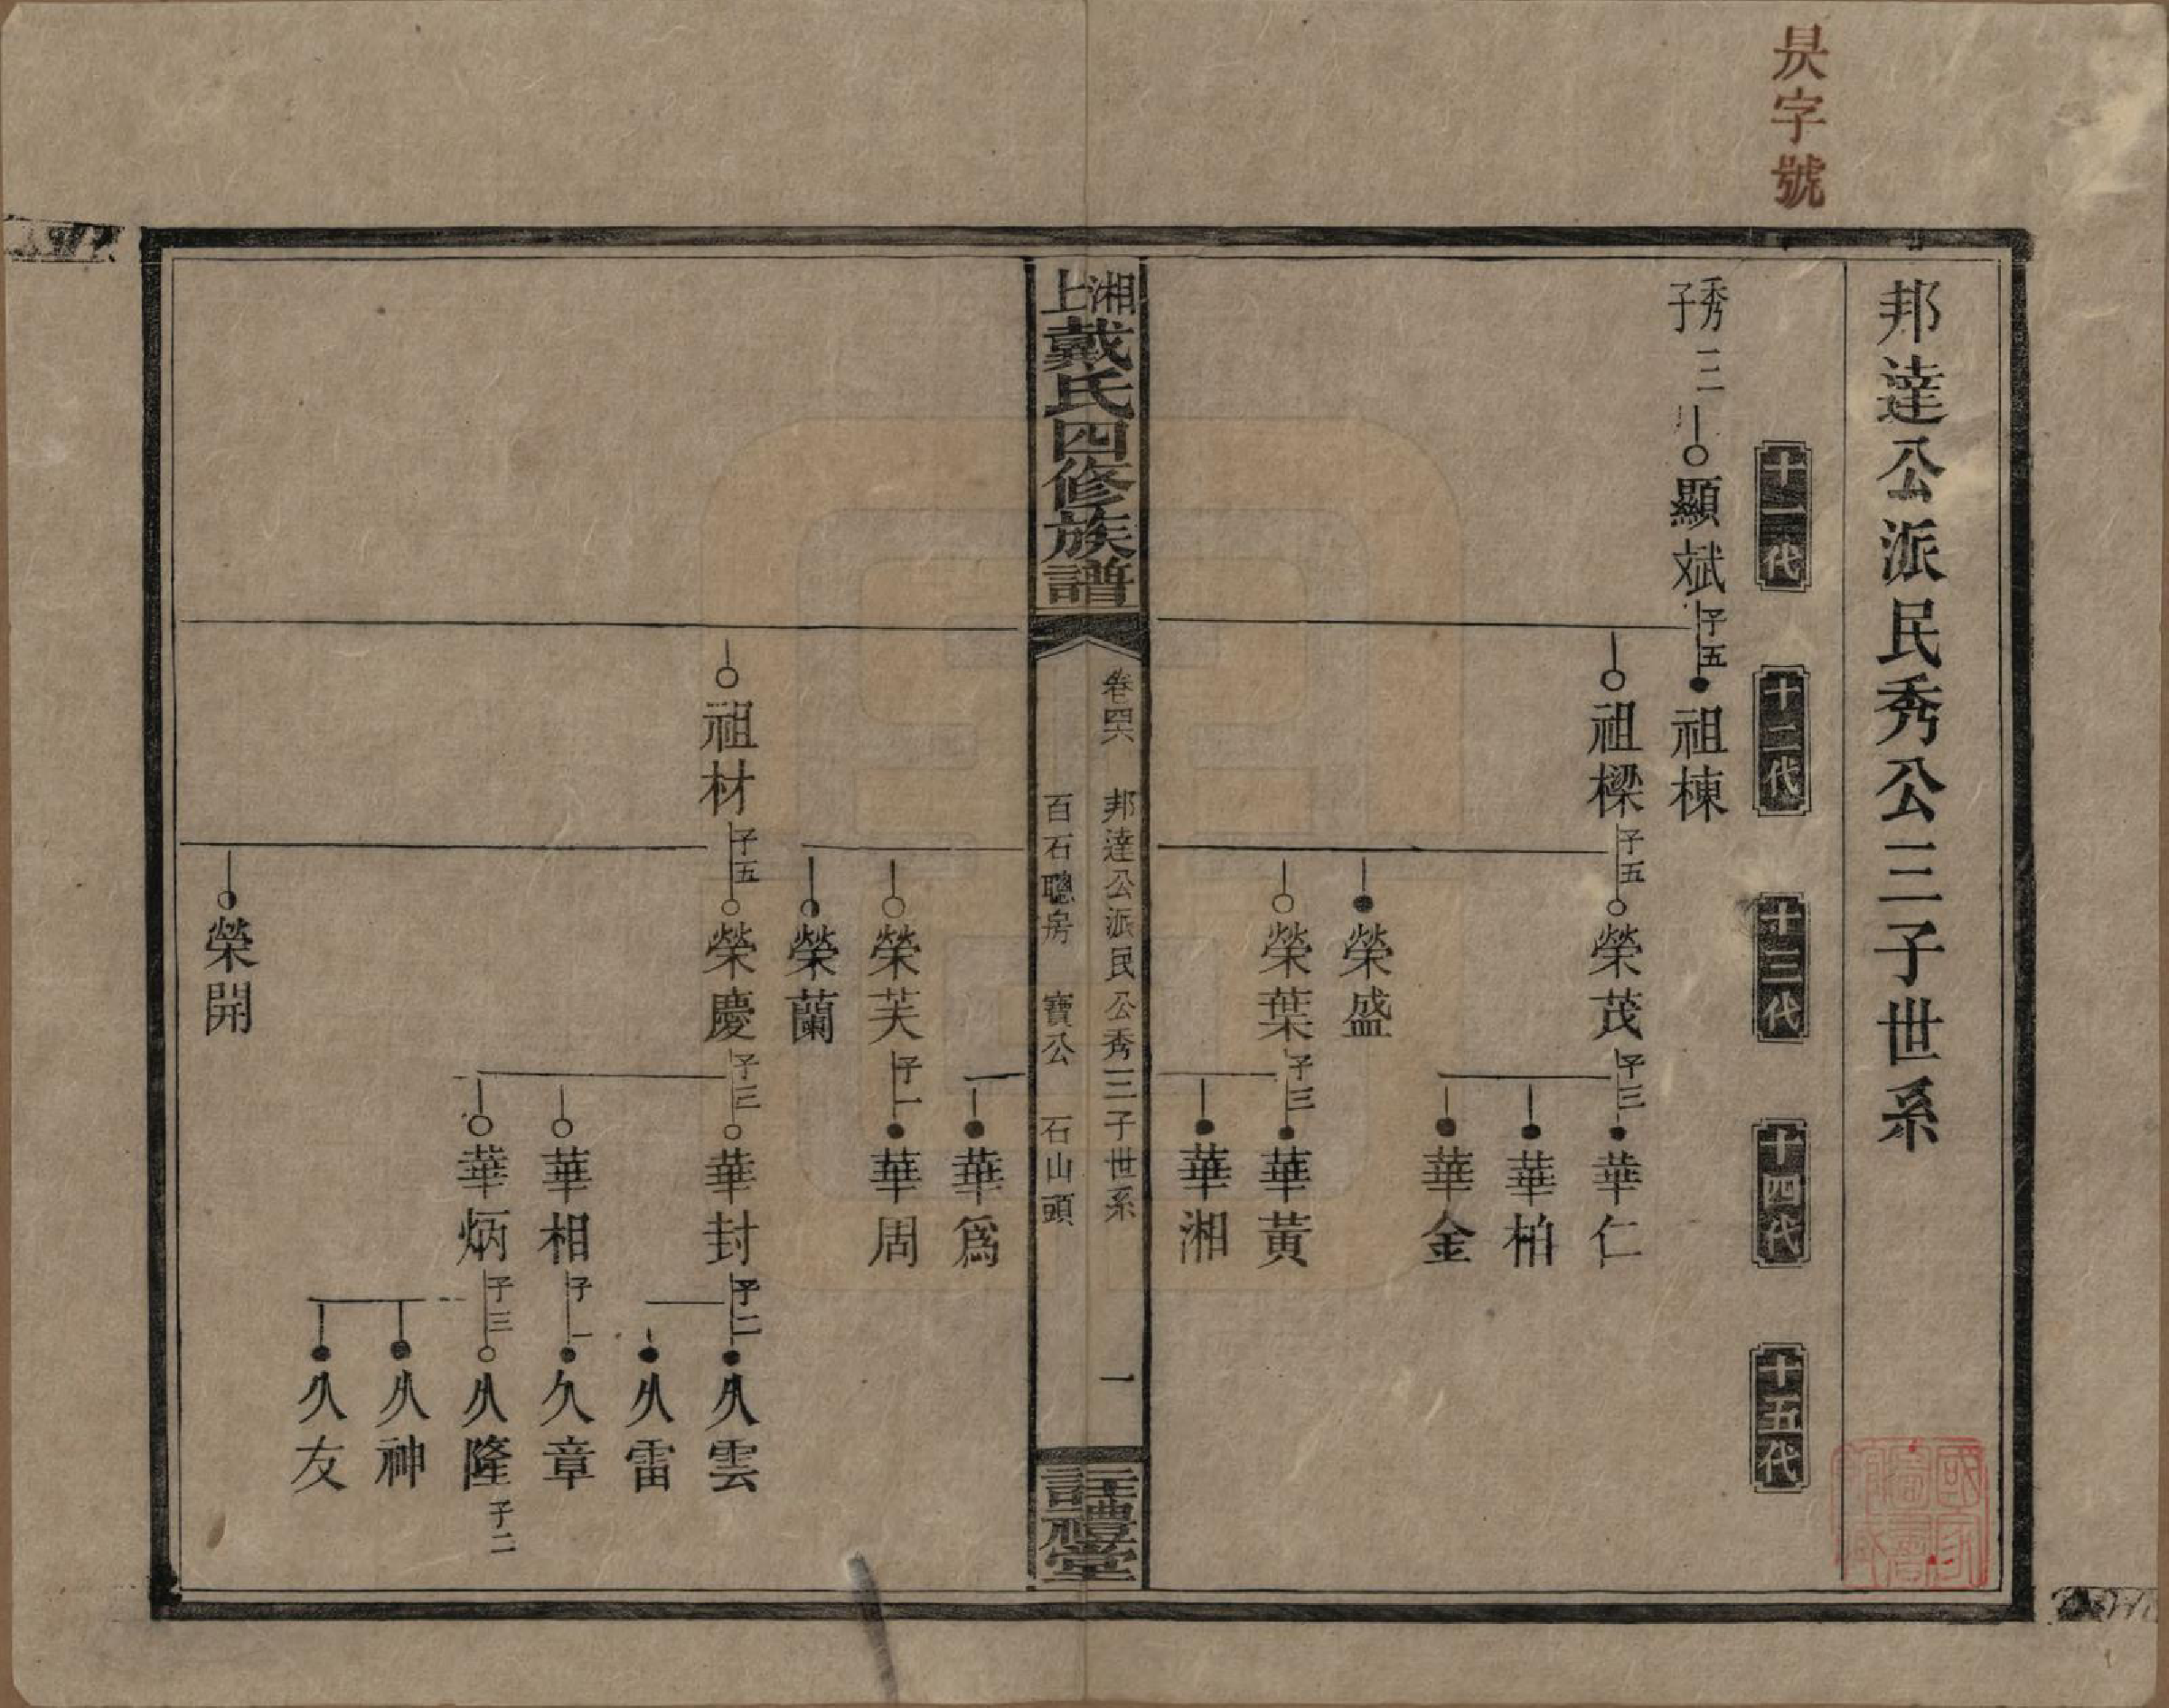 昃字號
邦達公派民秀公三子世系
十一代
十二代
十三代
十四代
十五代
秀三
子
顯斌
子五
祖棟
祖樑
子五
榮茂
子三
華仁
華柏
華金
榮盛
榮葉
子三
華黃
華湘
湘上戴氏四修族譜
卷四六
邦達公派民公秀三子世系
一
百石聰房
寶公
石山頭
註禮堂
華爲
榮芙
子一
華周
榮蘭
祖材
子五
榮慶
子三
華封
子二
久雲
久雷
華相
子一
久章
華炳
子三
久隆
子二
久神
久友
榮開
國家
圖書
館藏